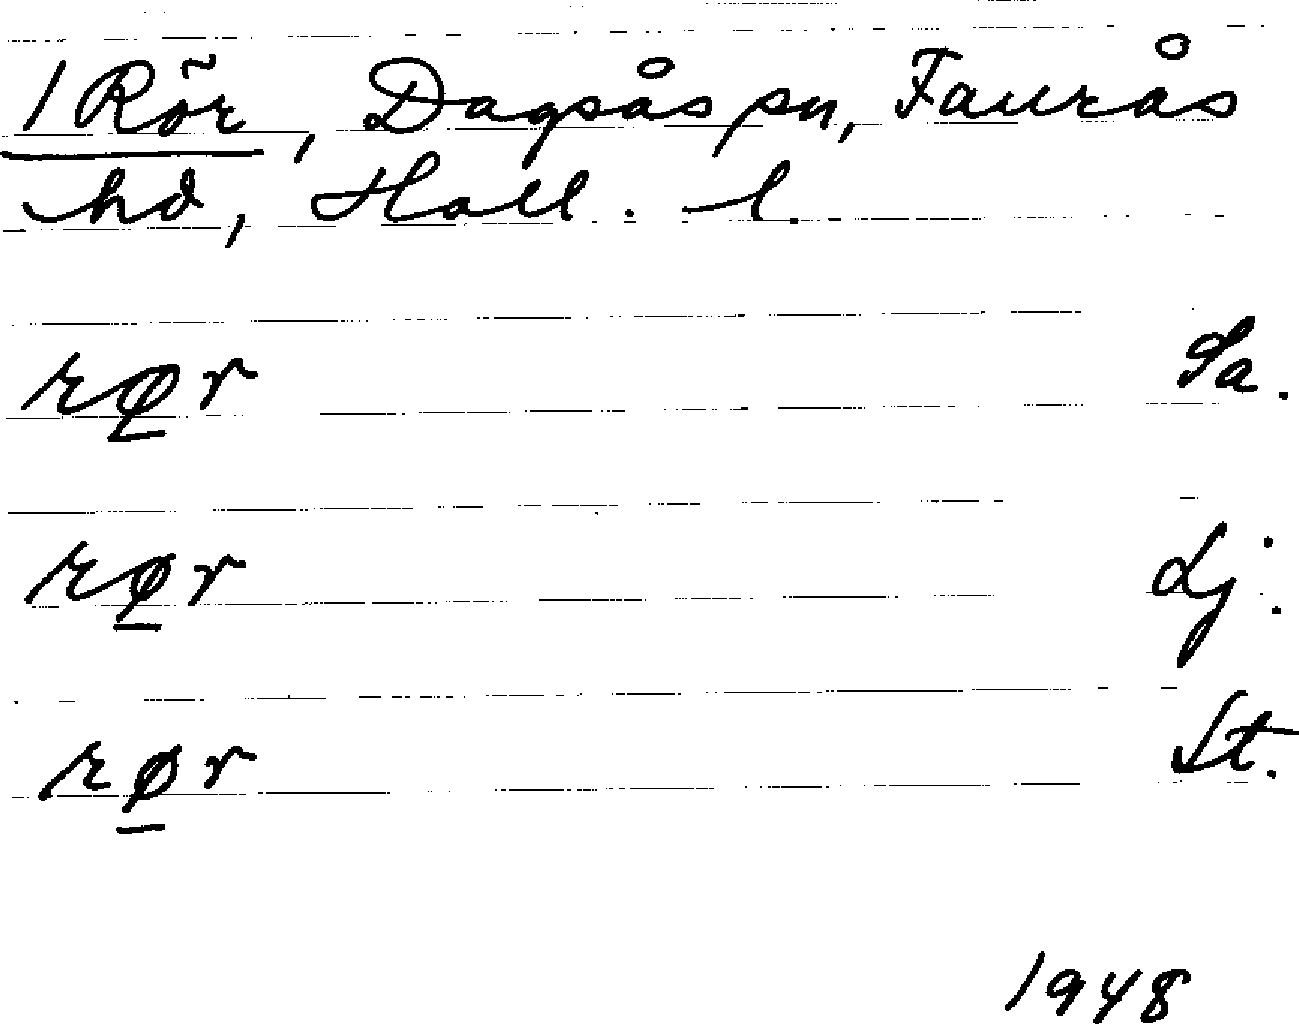 1 Rör, Dagsås sn, Faurås
hd, Hall. l.
rø̱r Sa.
rø̱r Lj.
rø̱r St.
1948